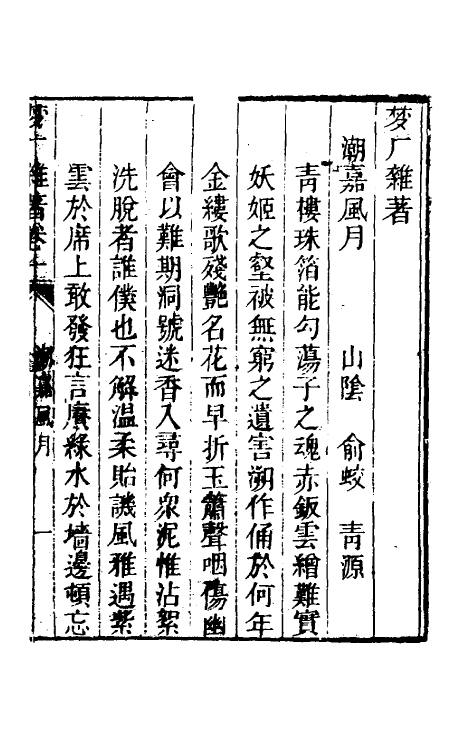 梦厂雜著
潮嘉風月 山陰 俞蛟 青源
青樓珠箔能勾蕩子之魂赤鈑雲繒難實
妖姬之壑被無窮之遺害溯作俑於何年
金縷歌殘艷名花而早折玉簫聲咽傷幽
會以難期洞號迷香入尋何衆泥惟沾絮
洗脫者誰僕也不解溫柔貽譏風雅遇紫
雲於席上敢發狂言賡綠水於墻邊頓忘
梦厂雜著卷十 潮嘉風月 一